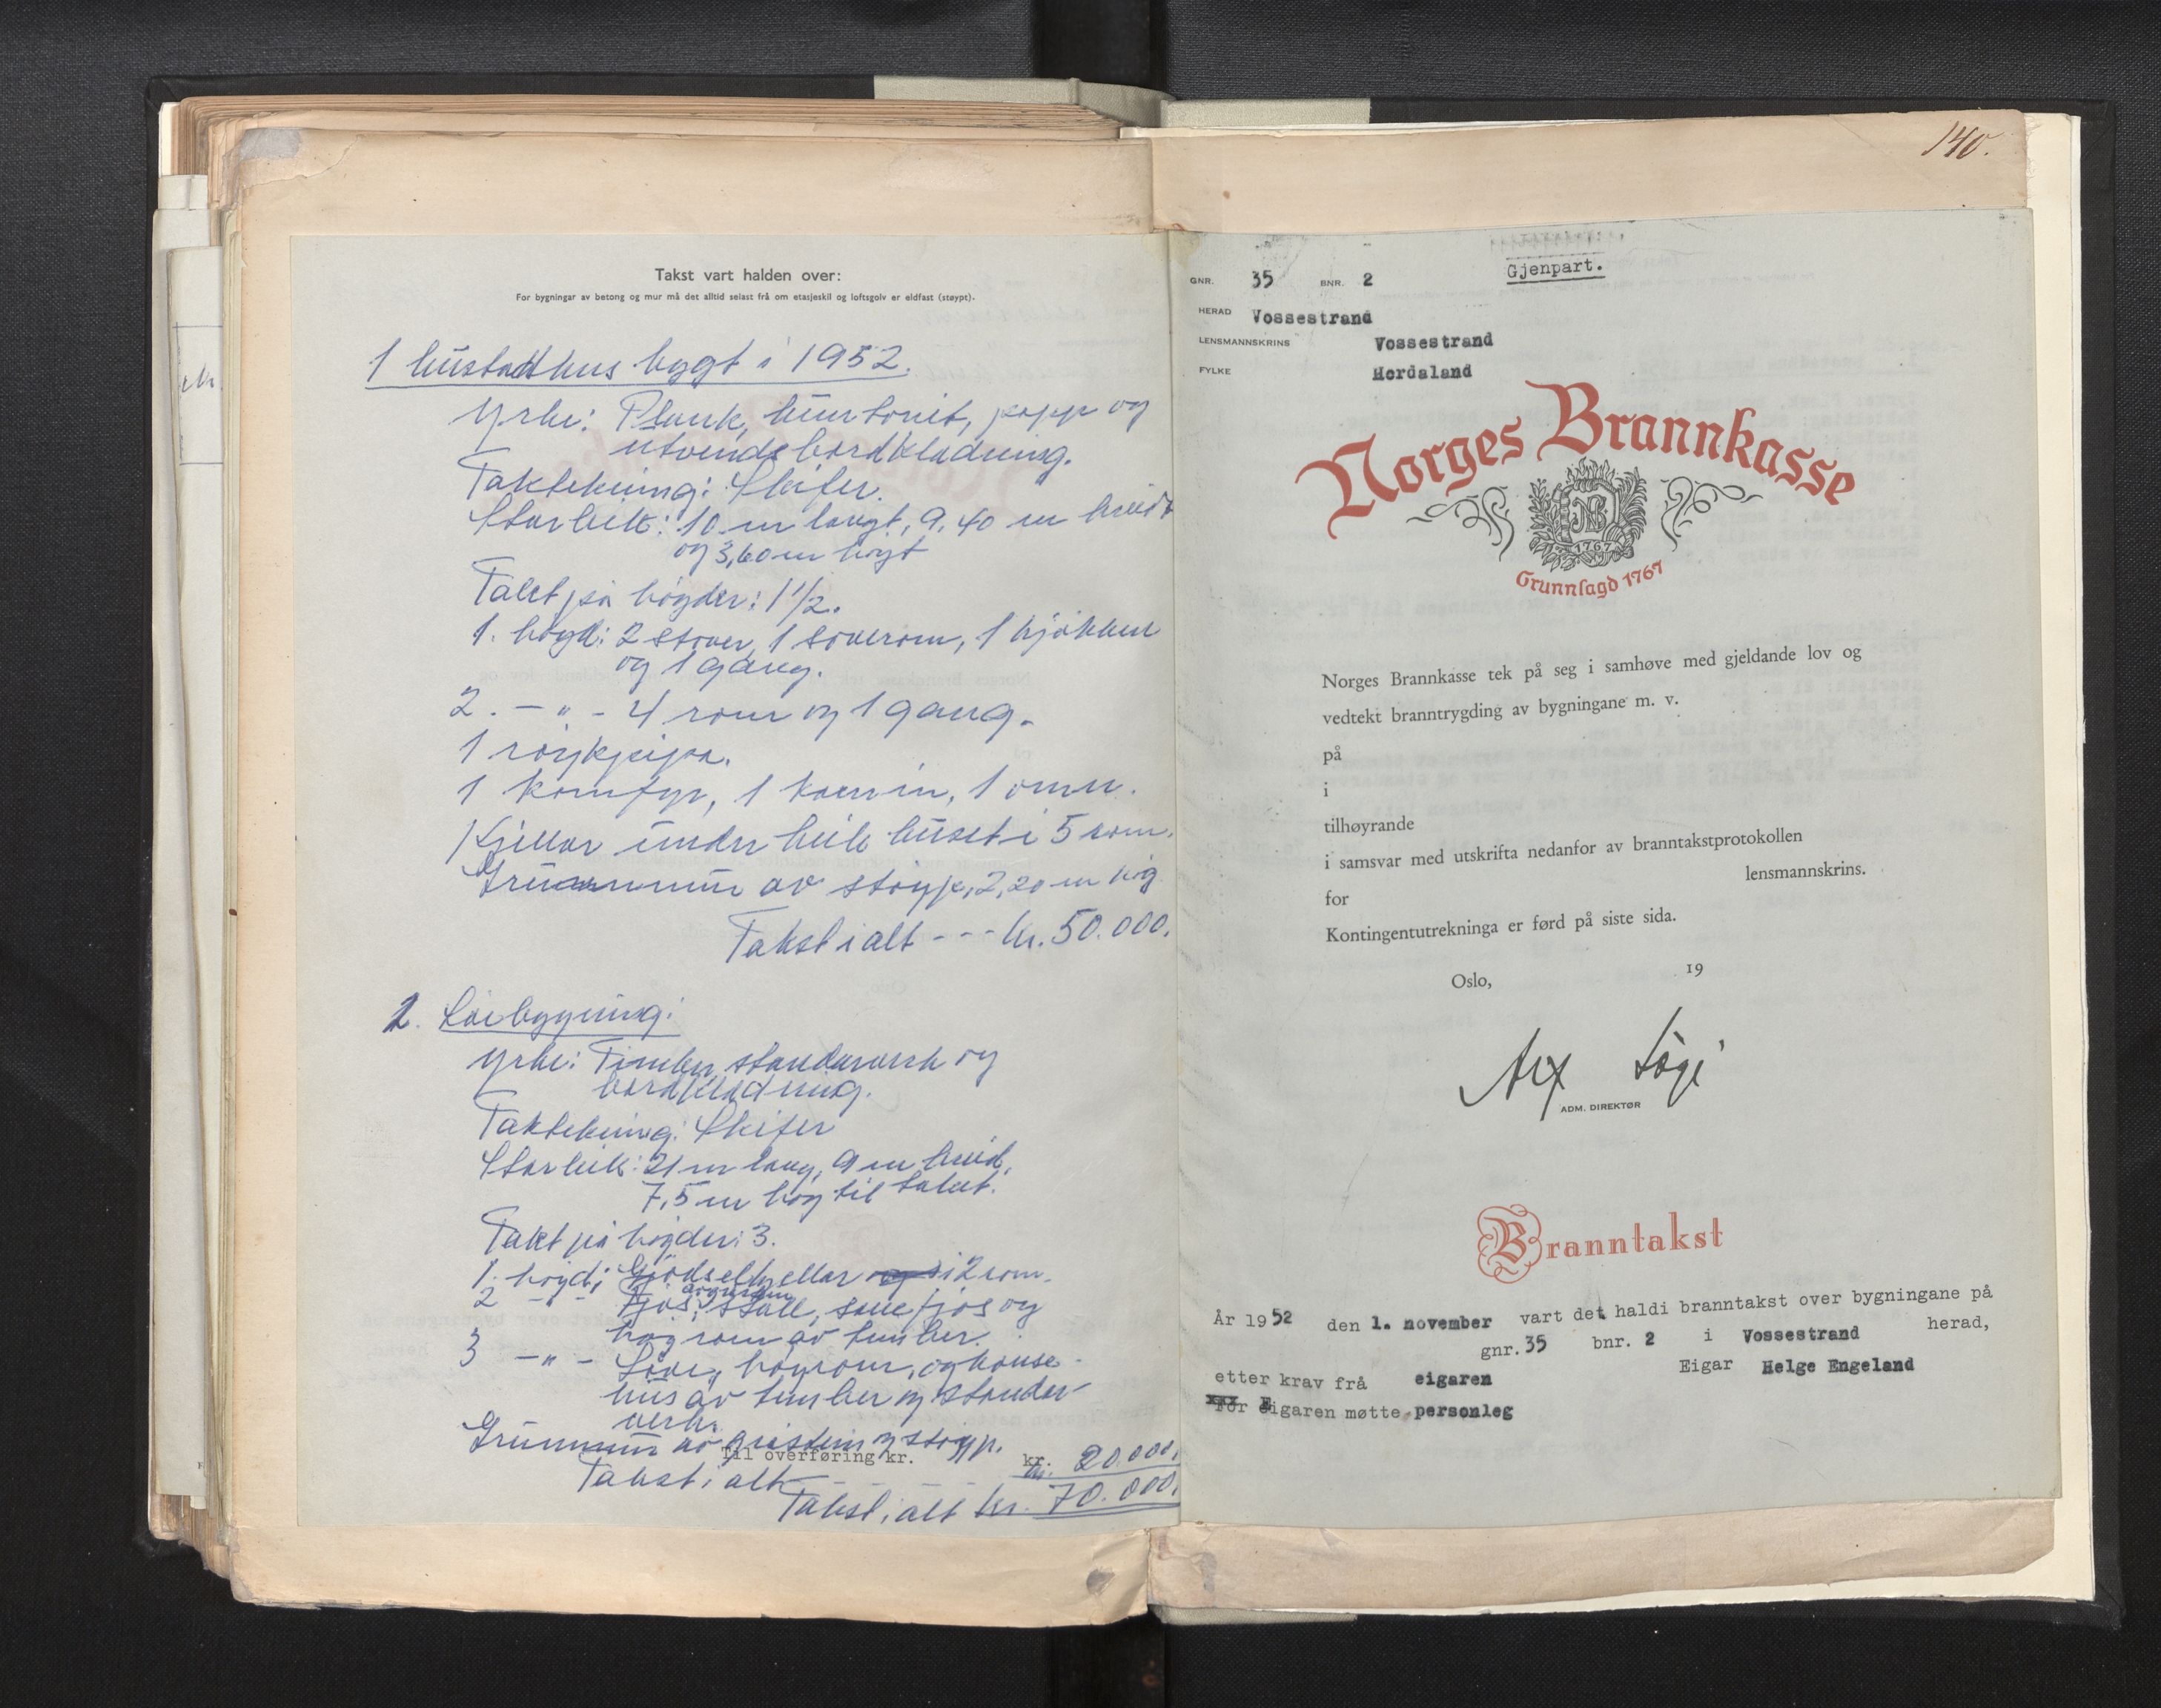 Takst vart halden over:
For bygningar av betong og mur må det alltid seiast frå om etasjeskil og loftsgolv er eldfast (støypt).
1 hustadhus bygt i 1952.
Yrke: Plank, huntonit, papp og
utvends bordkledning.
Taktekning: Skifer.
Storleik: 10 m langt, 9,40 m breidt
og 3,60 m høgt
Talet på høgder: 1 1/2.
1. høgd: 2 stover, 1 soverom, 1 kjøkken
og 1 gang.
2. -"- 4 rom og 1 gang.
1 røykpipa.
1 komfyr, 1 kamin, 1 omn.
Kjellar under heile huset i 5 rom.
Grunnmur av støyp, 2,20 m høg
Takst i alt --- kr. 50.000.
2. Løebygning:
Yrke: Timber, standarverk og
bordkledning.
Taktekning: Skifer
Storleik: 21 m lang, 9 m breid,
7,5 m høg til taket.
Talet på høgder: 3.
1. høgd: Gjødselkjellar og i 2 rom.
2 -"- Fjos, stall, sauefjos og
høyrom av timber.
3 -"- Løe, høyrom, og
hus av timber og stander-
verk.
Grunnmur av gråstein og støyp.
Til overføring kr.
kr. 20.000.
Takst i alt
Takst i alt kr. 70.000.
140.
Gjenpart.
GNR. 35 BNR. 2
HERAD Vossestrand
LENSMANNSKRINS Vossestrand
FYLKE Hordaland
Norges Brannkasse
NB
1767
Grunnlagd 1767
Norges Brannkasse tek på seg i samhøve med gjeldande lov og
vedtekt branntrygding av bygningane m. v.
på
i
tilhøyrande
i samsvar med utskrifta nedanfor av branntakstprotokollen
for lensmannskrins.
Kontingentutrekninga er førd på siste sida.
Oslo, 19
ADM. DIREKTØR
Branntakst
År 1952 den 1. november vart det haldi branntakst over bygningane på
gnr. 35 bnr. 2 i Vossestrand herad,
etter krav frå eigaren Eigar Helge Engeland
For Eigaren møtte personleg